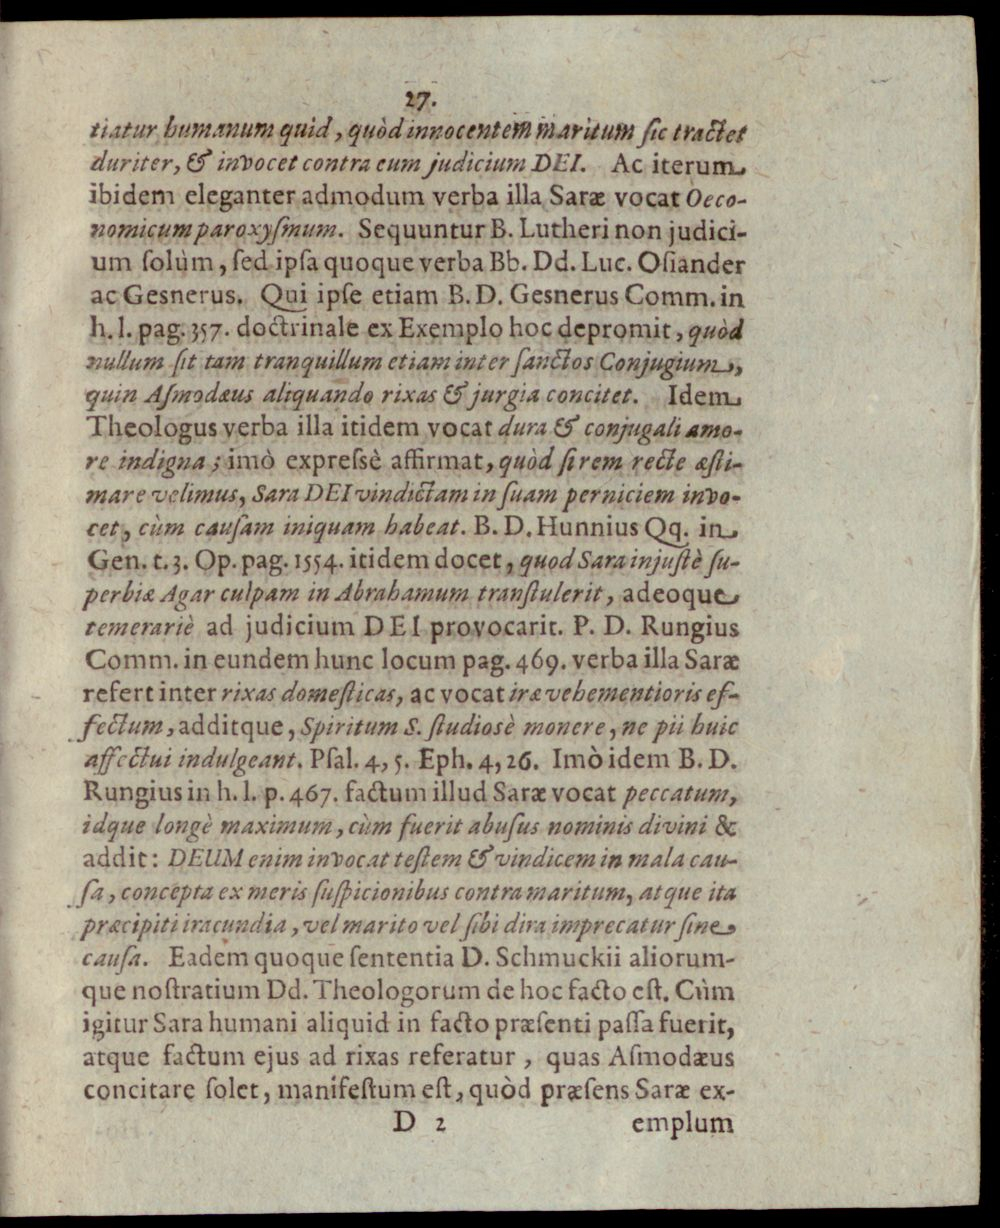 27.
tiatur humanum quid, quòd innocentem maritum ſic tractet
duriter, & invocet contra eum judicium DEI. Ac iterum
ibidem eleganter admodum verba illa Saræ vocat Oeco-
nomicum paroxyſmum. Sequuntur B. Lutheri non judici-
um ſolùm, ſed ipſa quoque verba Bb. Dd. Luc. Oſiander
ac Gesnerus. Qui ipſe etiam B. D. Gesnerus Comm. in
h. l. pag. 357. doctrinale ex Exemplo hoc depromit, quòd
nullum ſit tam tranquillum etiam inter ſanctos Conjugium,
quin Aſmodæus aliquando rixas & jurgia concitet. Idem
Theologus verba illa itidem vocat dura & conjugali amo-
re indigna; imò expreſsè affirmat, quòd ſi rem recte æſti-
mare velimus, Sara DEI vindictam in ſuam perniciem invo-
cet, cùm cauſam iniquam habeat. B. D. Hunnius Qq. in
Gen. t. 3. Op. pag. 1554. itidem docet, quod Sara injuſtè ſu-
perbiæ Agar culpam in Abrahamum tranſtulerit, adeoque
temerariè ad judicium DEI provocarit. P. D. Rungius
Comm. in eundem hunc locum pag. 469. verba illa Saræ
refert inter rixas domeſticas, ac vocat iræ vehementioris ef-
fectum, additque, Spiritum S. ſtudiosè monere, ne pii huic
affectui indulgeant. Pſal. 4, 5. Eph. 4, 26. Imò idem B. D.
Rungius in h. l. p. 467. factum illud Saræ vocat peccatum,
idque longè maximum, cùm fuerit abuſus nominis divini &
addit: DEUM enim invocat teſtem & vindicem in mala cau-
ſa, concepta ex meris ſuſpicionibus contra maritum, atque ita
præcipiti iracundia, vel marito vel ſibi dira imprecatur ſine
cauſa. Eadem quoque ſententia D. Schmuckii aliorum-
que noſtratium Dd. Theologorum de hoc facto eſt. Cùm
igitur Sara humani aliquid in facto præſenti paſſa fuerit,
atque factum ejus ad rixas referatur, quas Aſmodæus
concitare ſolet, manifeſtum eſt, quòd præſens Saræ ex-
D 2 emplum